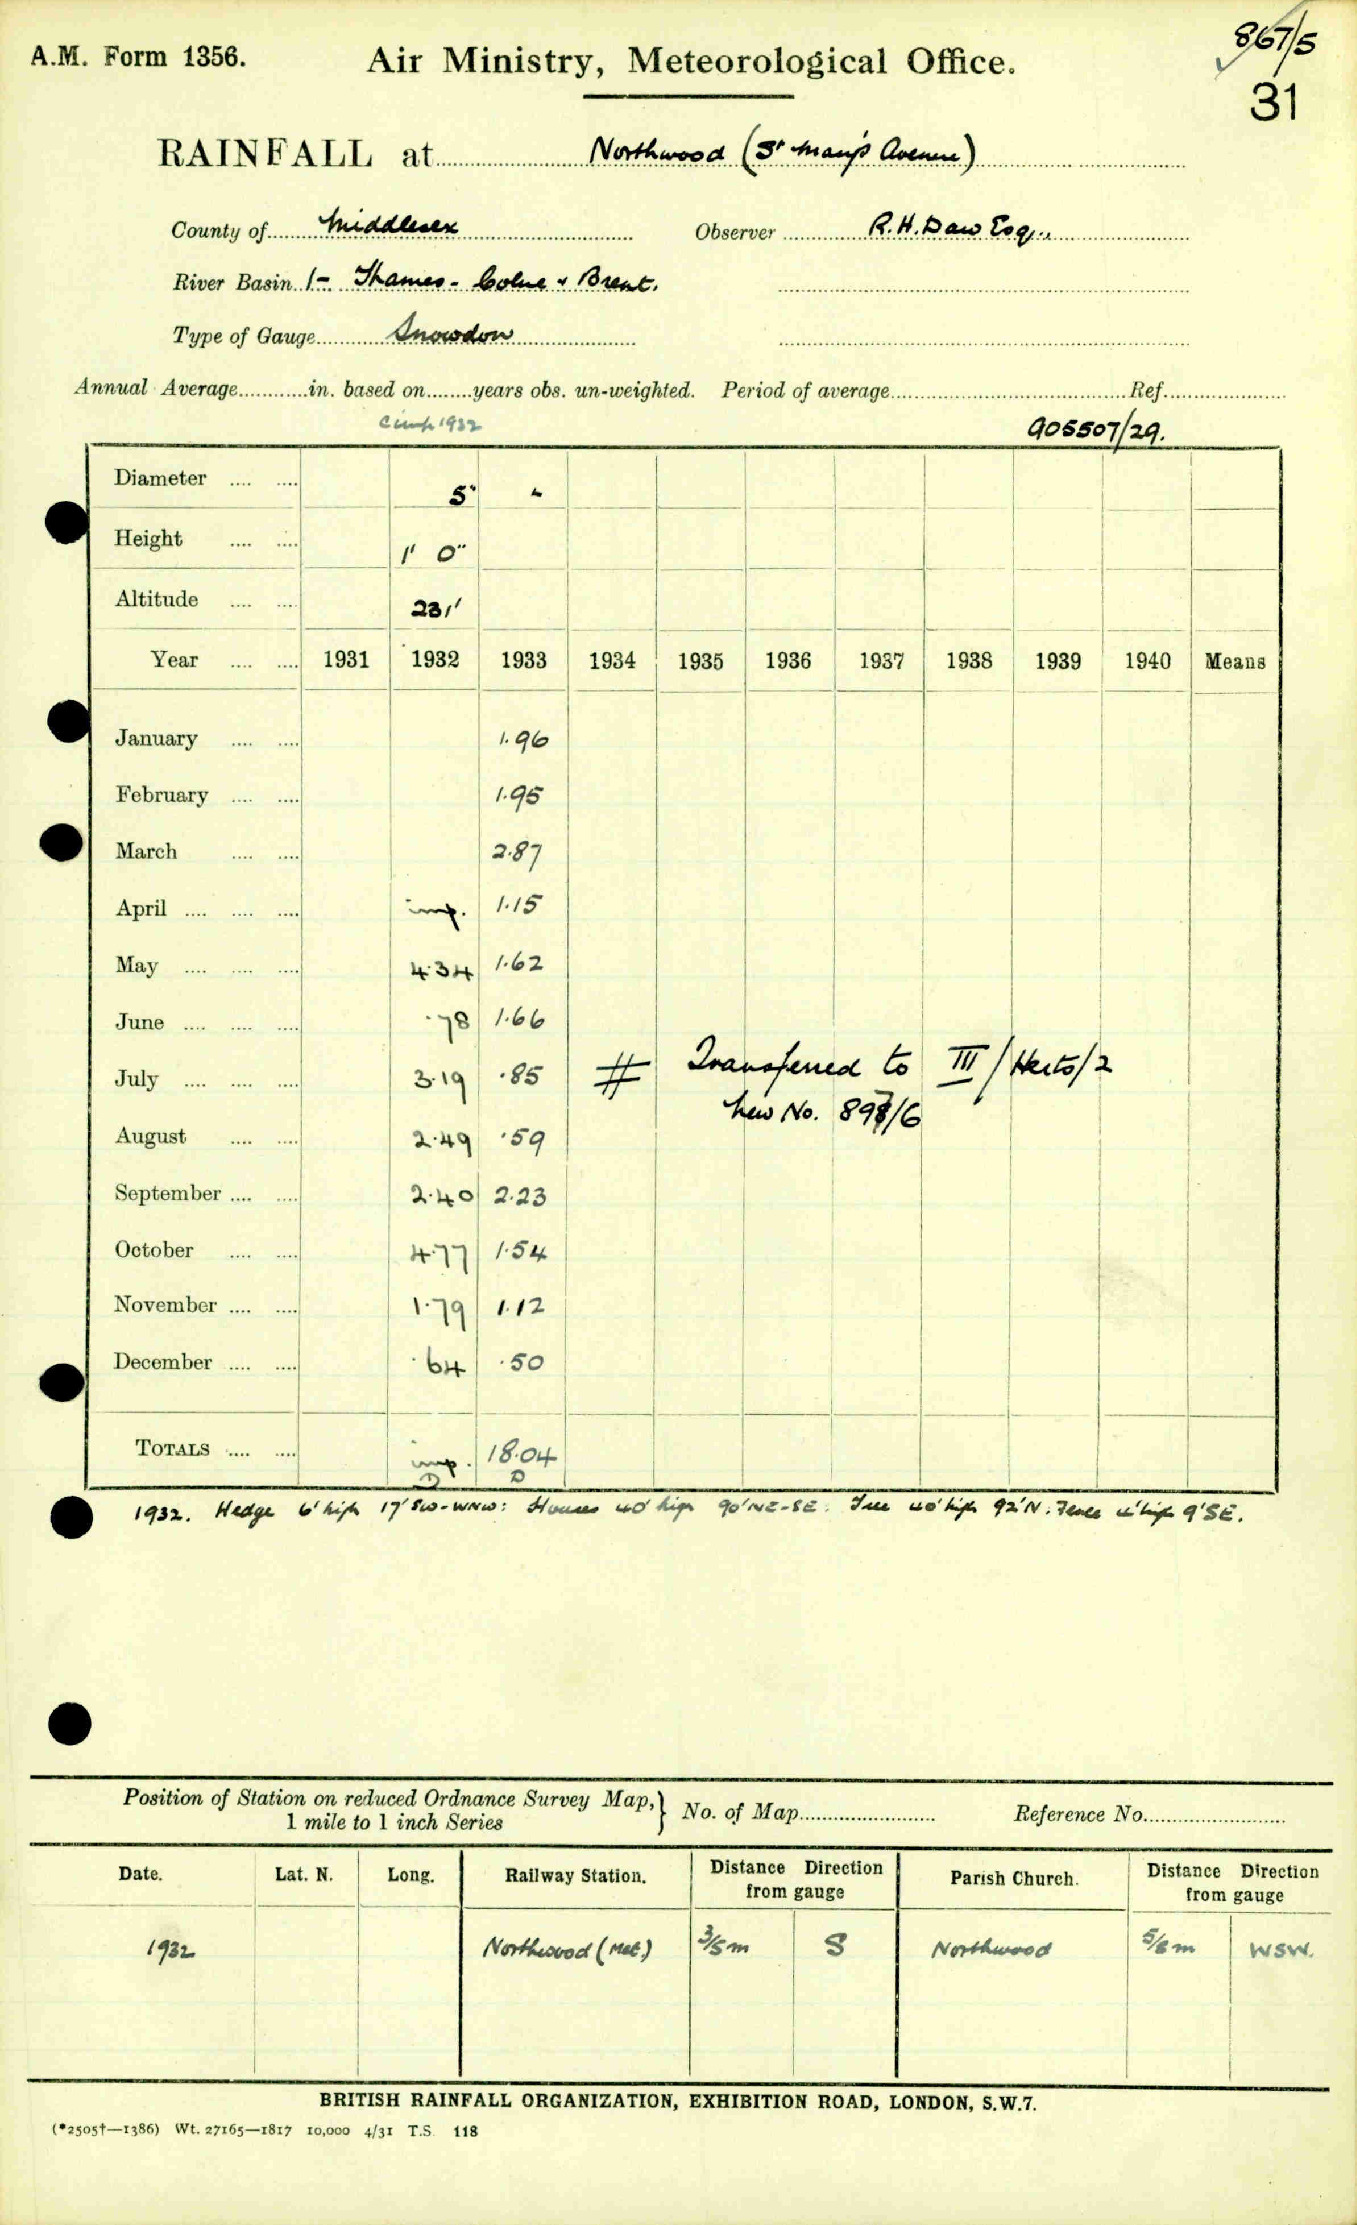 A.M. Form 1356.
Air Ministry, Meteorological Office.
867/5
31
RAINFALL at Northwood (St Mary's Avenue)
County of Middlesex Observer R.H. Daw Esq.,
River Basin 1- Thames - Colne & Brent.
Type of Gauge Snowdon
Annual Average in. based on years obs. un-weighted. Period of average Ref.
1932 905507/29.
Diameter .... .... 5" "
Height .... .... 1' 0"
Altitude .... .... 231'
Year .... .... 1931 1932 1933 1934 1935 1936 1937 1938 1939 1940 Means
January .... .... 1.96
February .... .... 1.95
March .... .... 2.87
April .... .... .... imp. 1.15
May .... .... .... 4.34 1.62
June .... .... .... .78 1.66
July .... .... .... 3.19 .85 # Transferred to III/Herts/2
New No. 897/6
August .... .... 2.49 .59
September .... .... 2.40 2.23
October .... .... 4.77 1.54
November .... .... 1.79 1.12
December .... .... .64 .50
TOTALS .... .... imp. 18.04
D D
1932. Hedge 6' high 17' SW-WNW: Houses 40' high 90' NE-SE: Tree 40' high 92' N: Fence 4' high 9' SE.
Position of Station on reduced Ordnance Survey Map,} No. of Map Reference No.
1 mile to 1 inch Series
Date. Lat. N. Long. Railway Station. Distance Direction from gauge Parish Church. Distance Direction from gauge
1932 Northwood (Met.) 3/5 m S Northwood 5/8 m WSW.
BRITISH RAINFALL ORGANIZATION, EXHIBITION ROAD, LONDON, S.W.7.
(*2505†—1386) Wt. 27165—1817 10,000 4/31 T.S. 118